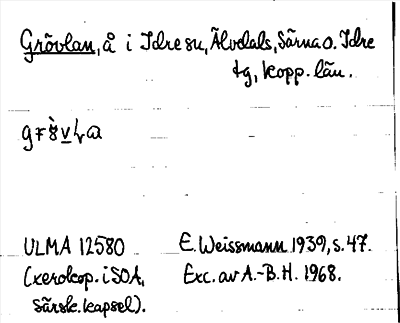 Grövlan, å i Idre sn, Älvdals, Särna o. Idre
tg, Kopp. län.
ULMA 12580
(xerokop. i SOA,
Särsk. kapsel).
E. Weissmann 1939, s. 47.
Exc. av A.-B. H. 1968.